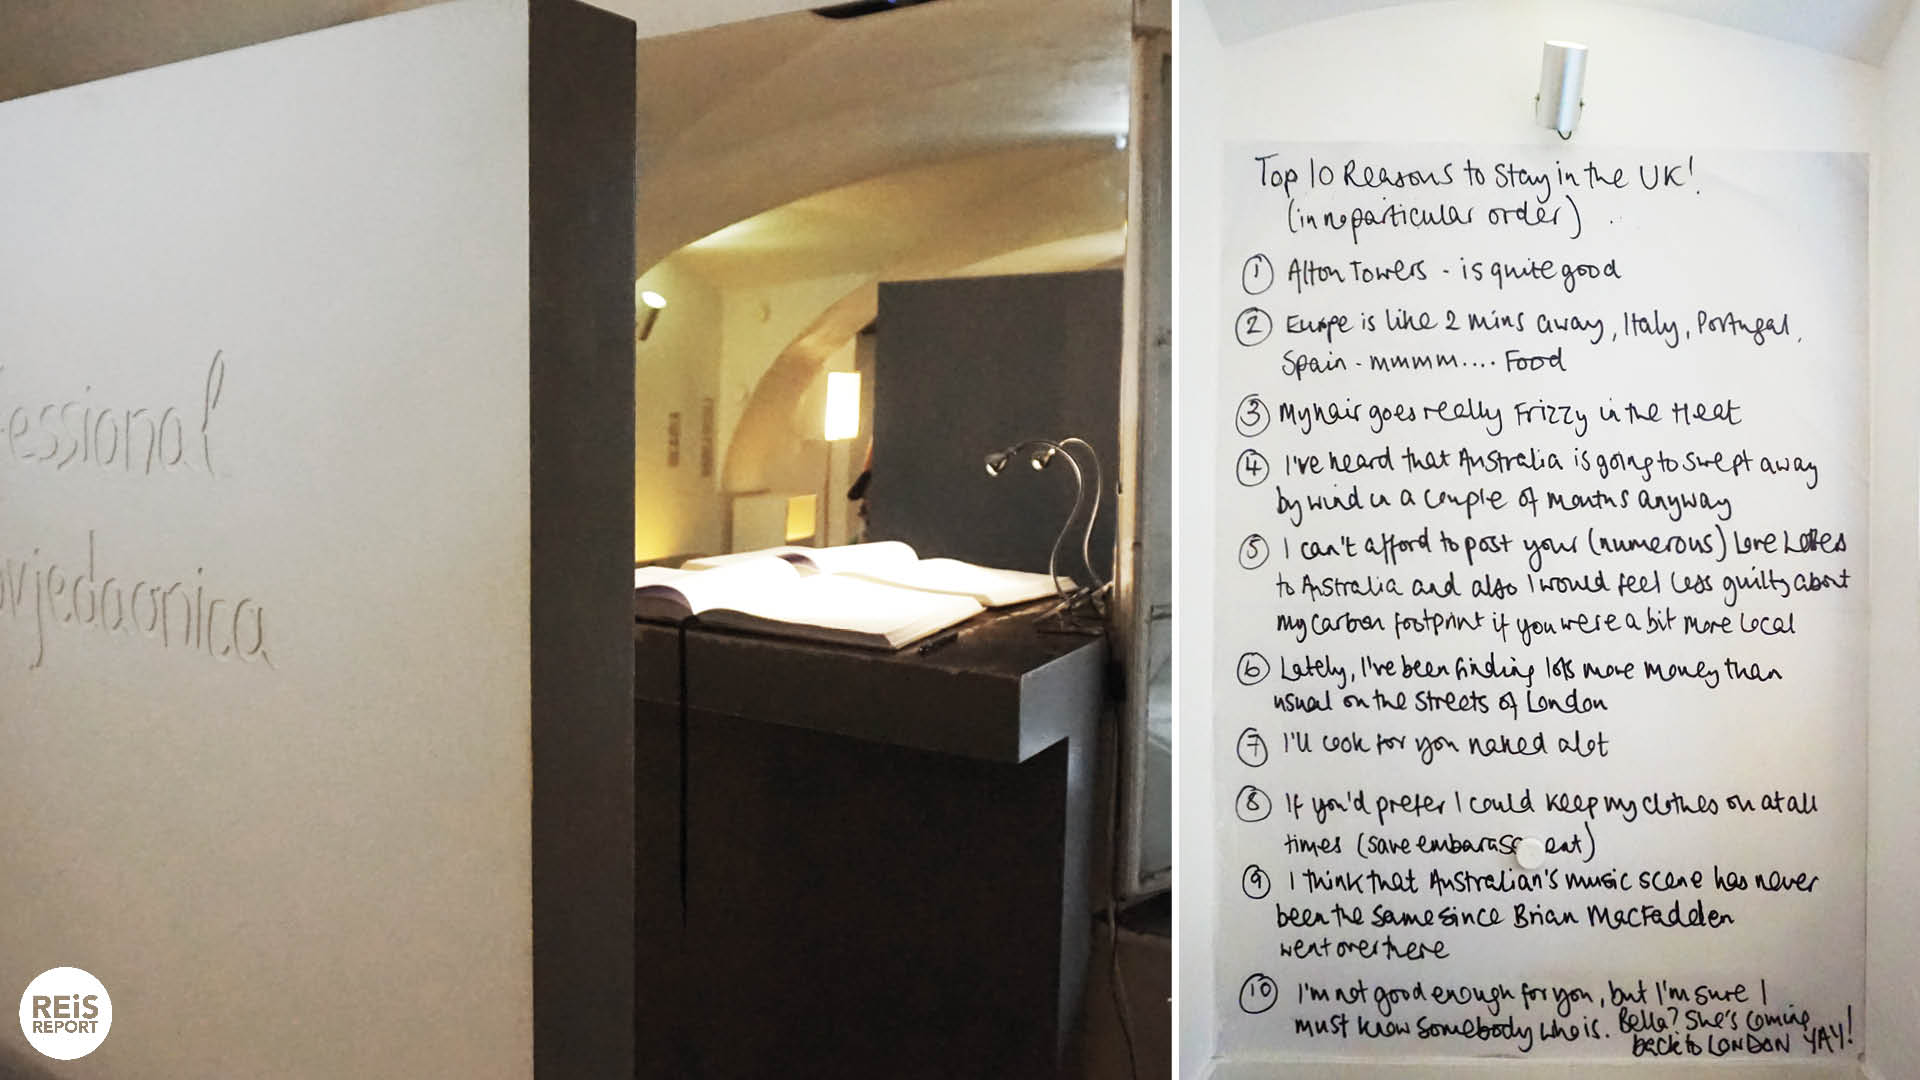 essional
ovjedaonica
REiS
REPORT
Top 10 Reasons to Stay in the UK!
(in no particular order)
1 Alton Towers - is quite good
2 Europe is like 2 mins away, Italy, Portugal,
Spain - mmmm.... Food
3 My hair goes really Frizzy in the Heat
4 I've heard that Australia is going to swept away
by wind in a couple of months anyway
5 I can't afford to post your (numerous) Love Letters
to Australia and also I would feel less guilty about
my carbon footprint if you were a bit more local
6 Lately, I've been finding lots more money than
usual on the streets of London
7 I'll cook for you naked alot
8 If you'd prefer I could keep my clothes on at all
times (save embarass ent)
9 I think that Australian's music scene has never
been the same since Brian MacFadden
went over there
10 I'm not good enough for you, but I'm sure I
must know somebody who is. Bella? She's coming
back to LONDON YAY!